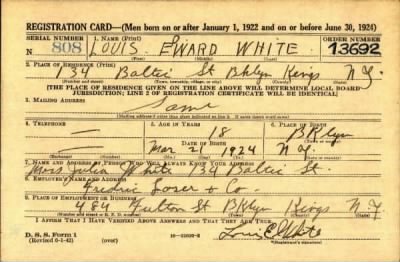 REGISTRATION CARD—(Men born on or after January 1, 1922 and on or before June 30, 1924)
SERIAL NUMBER 1. NAME (Print) ORDER NUMBER
N 808 LOUIS EWARD WHITE 13692
2. PLACE OF RESIDENCE (Print)
134 Baltic St Bklyn Kings N.Y.
(Number and street) (Town, township, village, or city) (County) (State)
[THE PLACE OF RESIDENCE GIVEN ON THE LINE ABOVE WILL DETERMINE LOCAL BOARD
JURISDICTION; LINE 2 OF REGISTRATION CERTIFICATE WILL BE IDENTICAL]
3. MAILING ADDRESS
Same
4. TELEPHONE 5. AGE IN YEARS 6. PLACE OF BIRTH
— 18 BKlyn
DATE OF BIRTH
— Mar 21 1924 N.Y.
7. NAME AND ADDRESS OF PERSON WHO WILL ALWAYS KNOW YOUR ADDRESS
Mrs Julia White 134 Baltic St.
8. EMPLOYER'S NAME AND ADDRESS
Fredric Loser + Co.
9. PLACE OF EMPLOYMENT OR BUSINESS
484 Fulton St BKlyn Kings N.Y
(Number and street or R. F. D. number) (Town) (County) (State)
I AFFIRM THAT I HAVE VERIFIED ABOVE ANSWERS AND THAT THEY ARE TRUE.
D. S. S. Form 1
(Revised 6-1-42) (over)
Louis E White
(Registrant's signature)